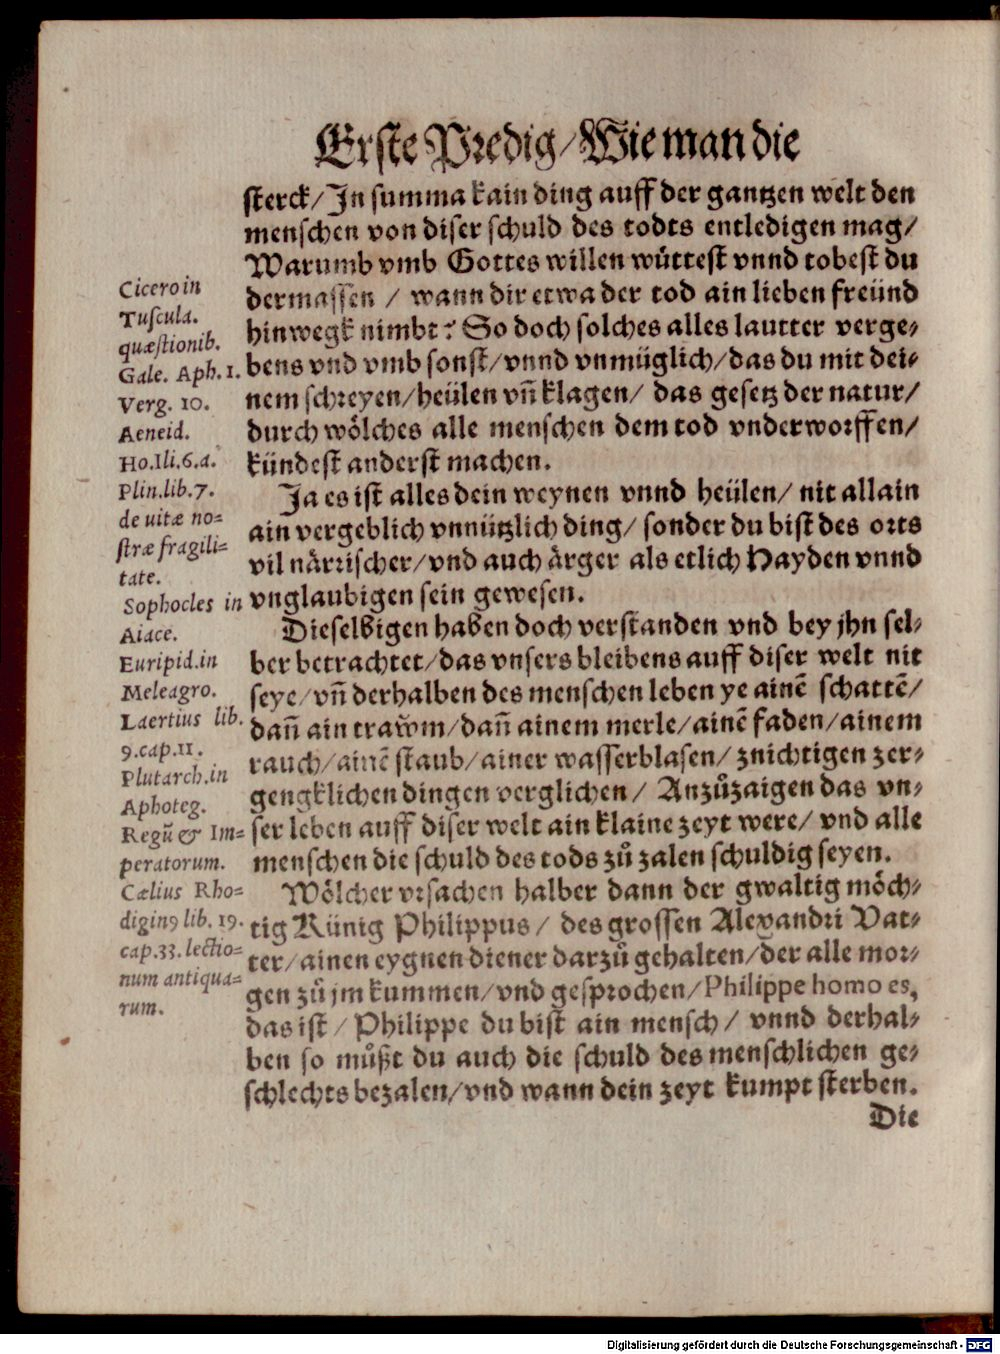 Erste Predig/Wie man die
sterck/In summa kain ding auff der gantzen welt den
menschen von diser schuld des todts entledigen mag/
Warumb vmb Gottes willen wüttest vnnd tobest du
dermassen / wann dir etwa der tod ain lieben freünd
hinwegk nimbt? So doch solches alles lautter verge-
bens vnd vmb sonst/vnnd vnmüglich/das du mit dei-
nem schreyen/heülen vñ klagen/ das gesetz der natur/
durch wölches alle menschen dem tod vnderworffen/
kündest anderst machen.
Ja es ist alles dein weynen vnnd heülen/ nit allain
ain vergeblich vnnützlich ding/ sonder du bist des orts
vil närrischer/vnd auch ärger als etlich Hayden vnnd
vnglaubigen sein gewesen.
Dieselbigen haben doch verstanden vnd bey jhn sel-
ber betrachtet/das vnsers bleibens auff diser welt nit
seye/vñ derhalben des menschen leben ye ainẽ schattẽ/
dañ ain traw̆m/dañ ainem merle/ainẽ faden/ainem
rauch/ainẽ staub/ainer wasserblasen/znichtigen zer-
gengklichen dingen verglichen/ Anzůzaigen das vn-
ser leben auff diser welt ain klaine zeyt were/ vnd alle
menschen die schuld des tods zů zalen schuldig seyen.
Wölcher vrsachen halber dann der gwaltig möch-
tig Künig Philippus / des grossen Alexandri Vat-
ter/ainen eygnen diener darzů gehalten/der alle mor-
gen zů jm kummen/vnd gesprochen/Philippe homo es,
das ist / Philippe du bist ain mensch / vnnd derhal-
ben so můßt du auch die schuld des menschlichen ge-
schlechts bezalen/vnd wann dein zeyt kumpt sterben.
Die
Cicero in
Tuscula.
quæstionib.
Gale. Aph. 1.
Verg. 10.
Aeneid.
Ho.Ili.6.a.
Plin.lib.7.
de uitæ no=
stræ fragili=
tate.
Sophocles in
Aiace.
Euripid.in
Meleagro.
Laertius lib.
9.cap.11.
Plutarch.in
Aphoteg.
Regũ & Im=
peratorum.
Cælius Rho=
diginꝰ lib. 19.
cap.33.lectio=
num antiqua=
rum.
Digitalisierung gefördert durch die Deutsche Forschungsgemeinschaft - DFG